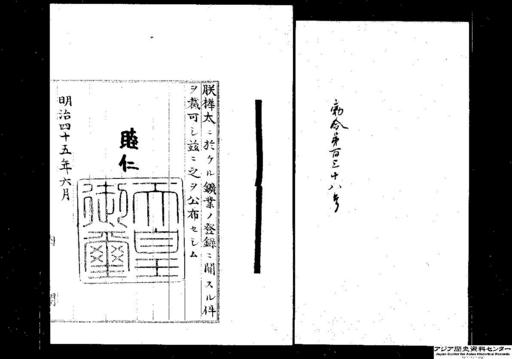 勅令第百三十八号
朕樺太ニ於ケル鑛業ノ登録ニ関スル件
ヲ裁可シ茲ニ之ヲ公布セシム
睦仁
天皇
御璽
明治四十五年六月
内閣
アジア歴史資料センター
Japan Center for Asian Historical Records